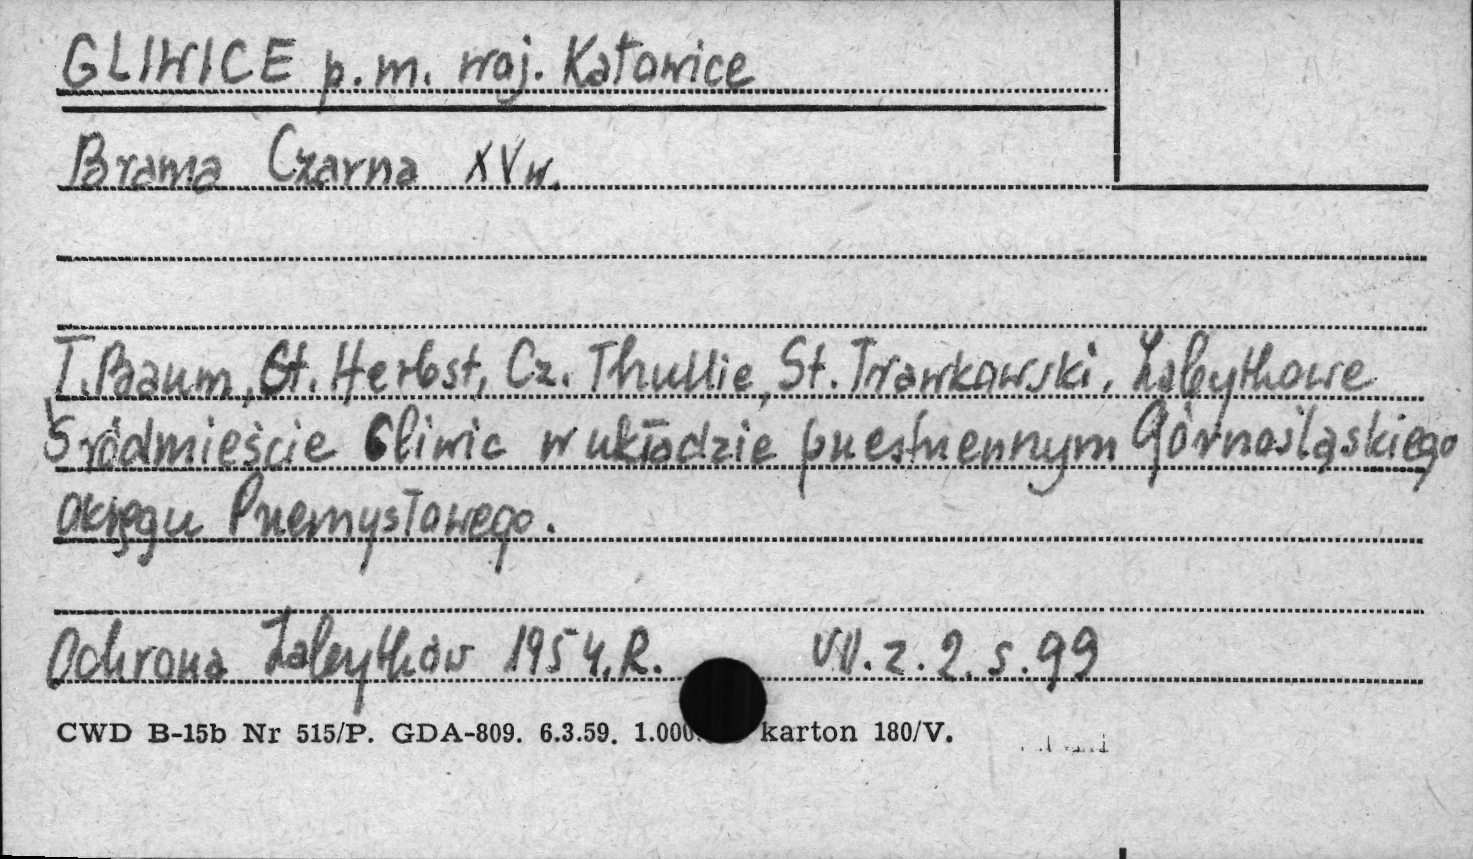 GLIWICE p.m. woj. Katowice
Brama Czarna XV w.
T. Baum, St. Herbst, Cz. Thullie, St. Trawkowski, Zabytkowe
Śródmieście Gliwic w układzie przestrzennym Górnośląskiego
okręgu Przemysłowego.
Ochrona Zabytków 1954. R. VII. z. 2. s. 99
CWD B-15b Nr 515/P. GDA-809. 6.3.59. 1.000. karton 180/V.